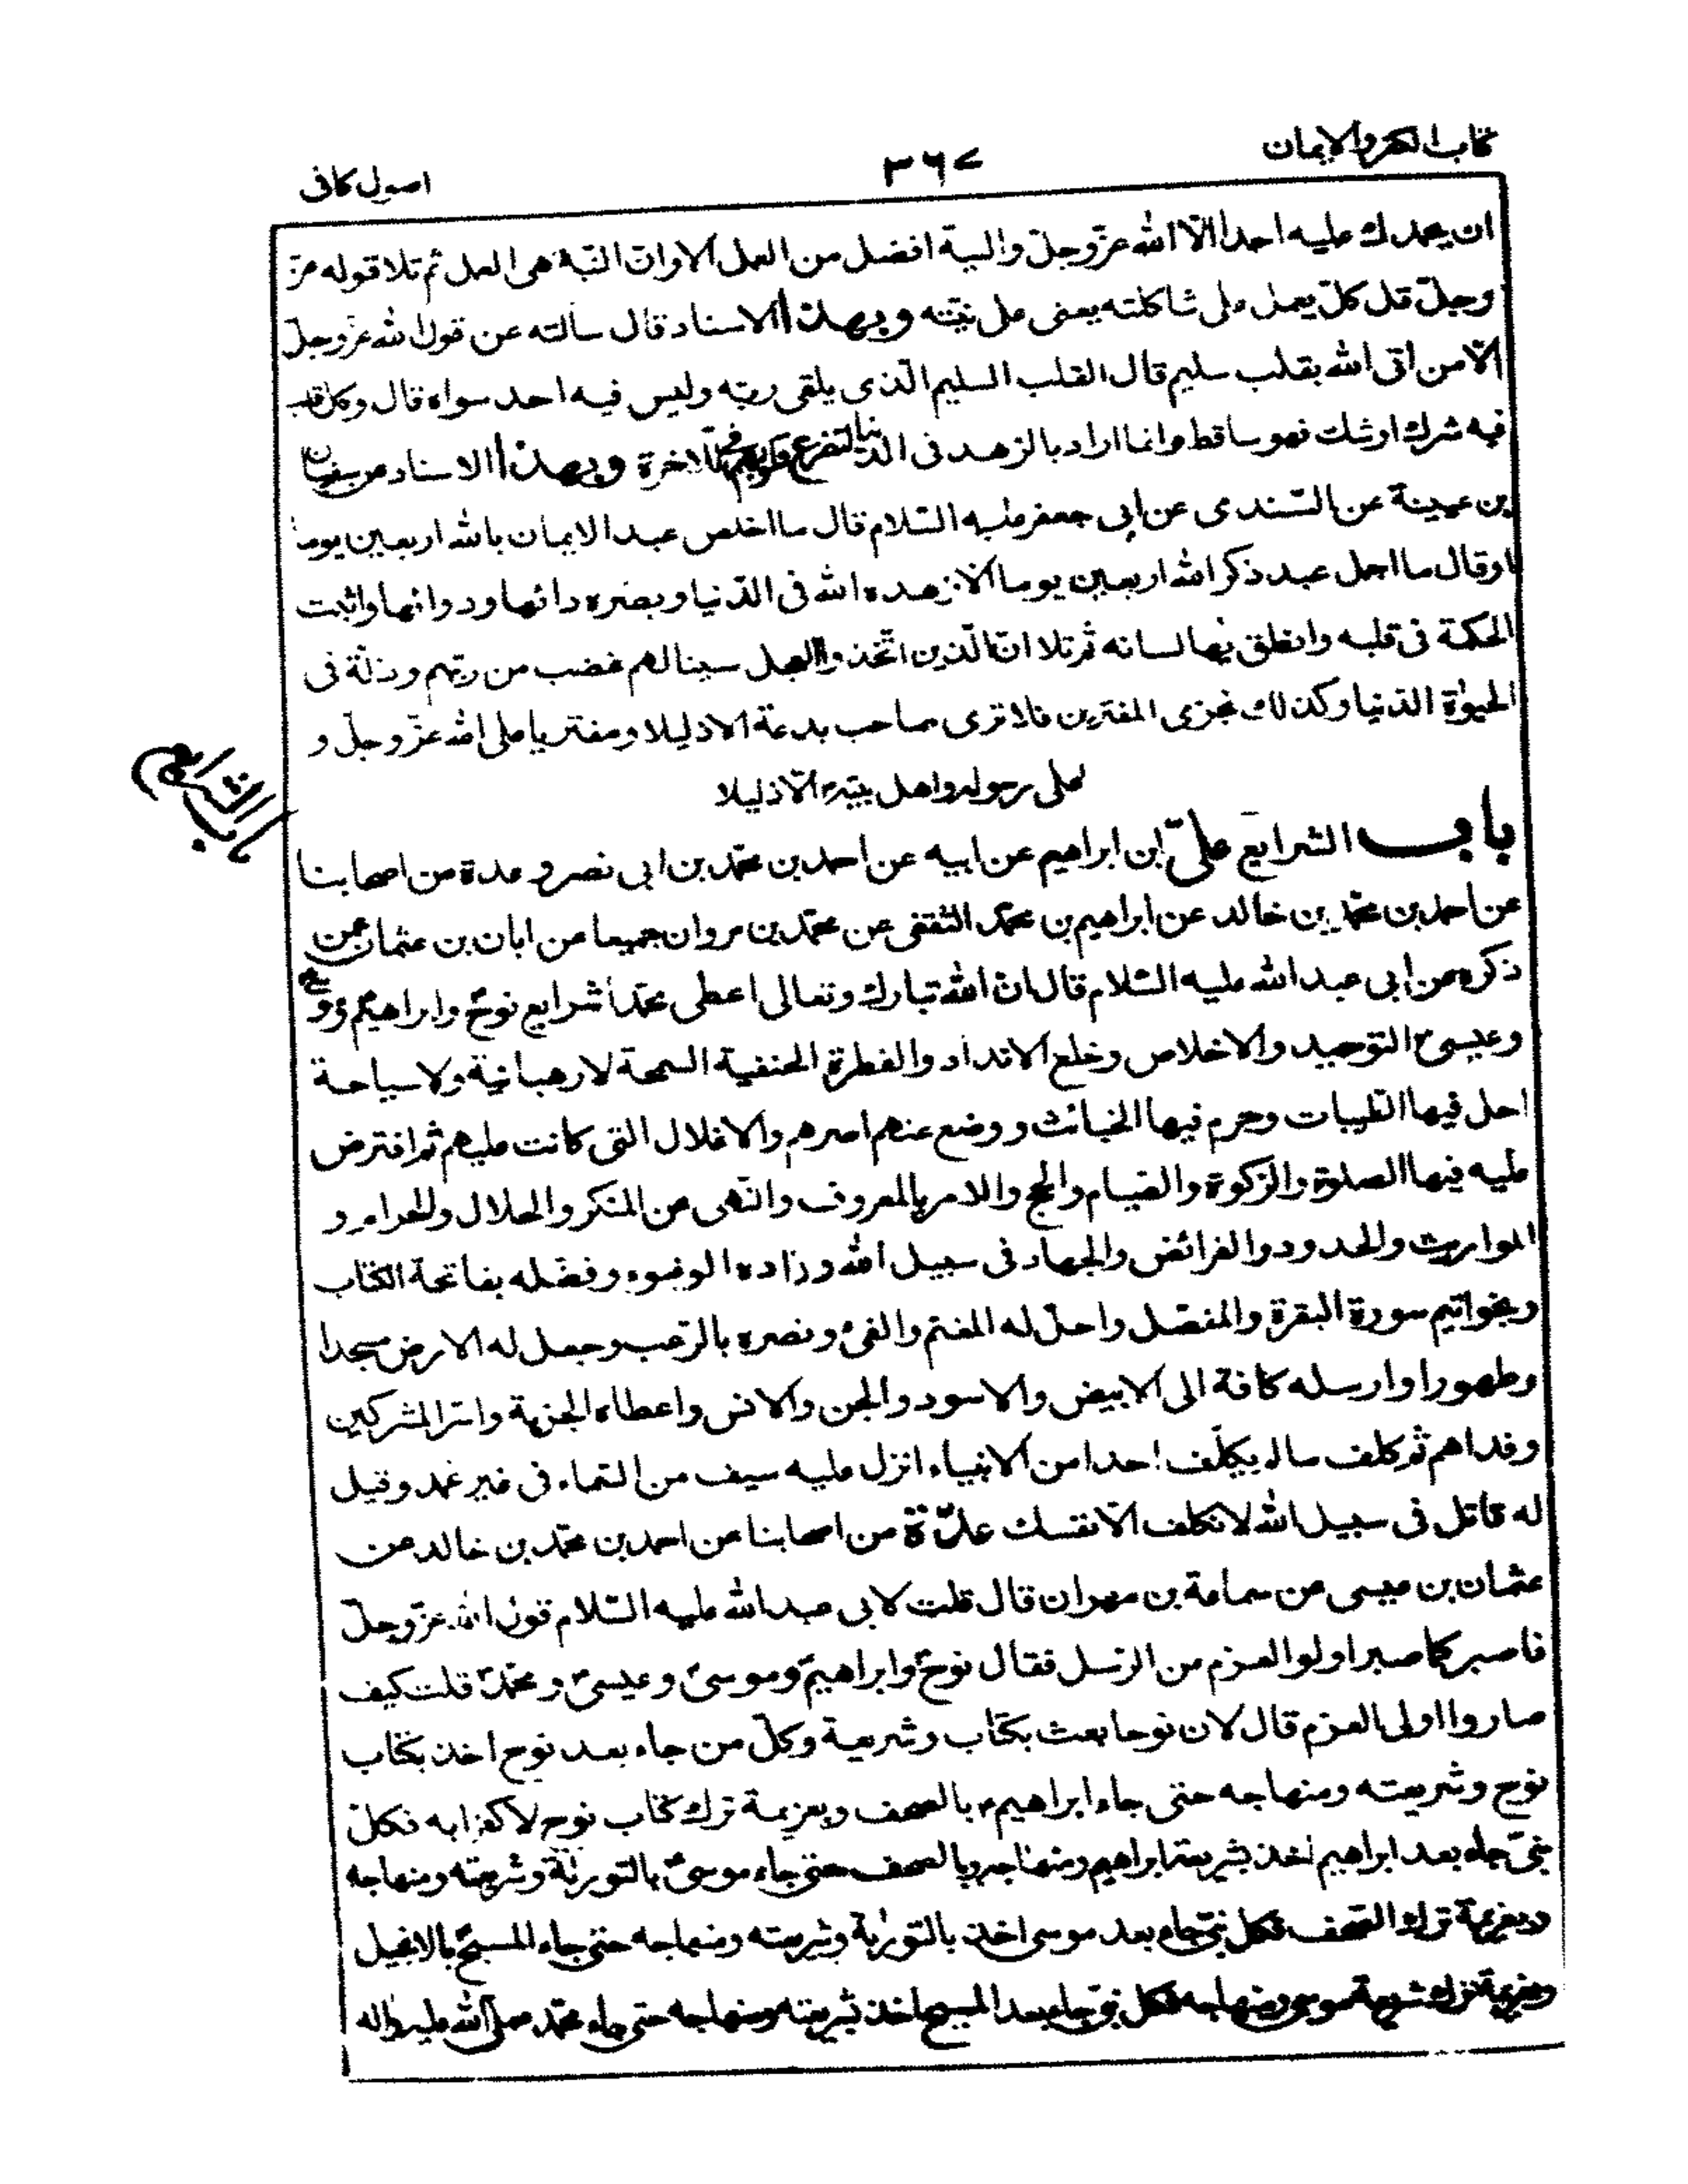 كتاب الكفر والايمان
٣٦٧
اصول كافى
ان يحمدك عليه احدا الّا الله عزّ وجلّ والنية افضل من العمل الا وانّ النيّة هى العمل ثم تلا قوله عزّ
وجلّ قل كلّ يعمل على شاكلته يعنى على نيّته وبهذا الاسناد قال سألته عن قول الله عزّ وجلّ
الّا من اتى الله بقلب سليم قال القلب السليم الّذى يلقى ربّه وليس فيه احد سواه قال وكل قلب
فيه شرك او شك فهو ساقط وانما اراد بالزهد فى الدنيا لتفرغ قلوبهم للاخرة وبهذا الاسناد عن سفيان
بن عيينة عن السّندى عن ابى جعفر عليه السّلام قال ما اخلص عبد الايمان بالله اربعين يوما
او قال ما اجل عبد ذكر الله اربعين يوما الّا زهده الله فى الدّنيا وبصّره دائها ودوائها واثبت
الحكمة فى قلبه وانطق بها لسانه ثم تلا انّ الّذين اتّخذوا العجل سينالهم غضب من ربّهم وذلّة فى
الحيوٰة الدّنيا وكذلك نجزى المفترين فلا ترى صاحب بدعة الا ذليلا ومفتريا على الله عزّ وجلّ و
على رسوله واهل بيته الّا ذليلا
باب الشرايع
باب الشرايع علىّ ابن ابراهيم عن ابيه عن احمد بن محمّد بن ابى نصر وعدة من اصحابنا
عن احمد بن محمّد بن خالد عن ابراهيم بن محمّد الثقفى عن محمّد بن مروان جميعا عن ابان بن عثمان عمن
ذكره عن ابى عبد الله عليه السّلام قال ان الله تبارك وتعالى اعطى محمّدا شرايع نوح وابراهيم وموسى
وعيسى التوحيد والاخلاص وخلع الانداد والفطرة الحنفية السمحة لا رهبانيّة ولا سياحة
احل فيها الطيبات وحرم فيها الخبائث ووضع عنهم اصرهم والاغلال التى كانت عليهم ثم افترض
عليه فيها الصلوة والزكوة والصّيام والحج والامر بالمعروف والنّهى عن المنكر والحلال والحرام و
المواريث والحدود والفرائض والجهاد فى سبيل الله وزاده الوضوء وفضّله بفاتحة الكتاب
وبخواتيم سورة البقرة والمفصّل واحلّ له المغنم والفئ ونصره بالرّعب وجعل له الارض مسجدا
وطهورا وارسله كافة الى الابيض والاسود والجن والانس واعطاه الجزية واسر المشركين
وفداهم ثم كلف ما لم يكلّف احدا من الانبياء انزل عليه سيف من السّماء فى غير غمد وقيل
له قاتل فى سبيل الله لا تكلف الّا نفسك عدّة من اصحابنا عن احمد بن محمّد بن خالد عن
عثمان بن عيسى عن سماعة بن مهران قال قلت لابى عبد الله عليه السّلام قول الله عزّ وجلّ
فاصبر كما صبر اولوا العزم من الرّسل فقال نوح وابراهيم وموسى وعيسى ومحمّد قلت كيف
صاروا اولى العزم قال لان نوحا بعث بكتاب وشريعة وكلّ من جاء بعد نوح اخذ بكتاب
نوح وشريعته ومنهاجه حتى جاء ابراهيم ع بالصحف وبعزيمة ترك كتاب نوح لا كفرا به فكلّ
نبىّ جاء بعد ابراهيم اخذ بشريعة ابراهيم ومنهاجه وبالصحف حتى جاء موسى بالتورية وشريعته ومنهاجه
وبعزيمة ترك الصّحف فكل نبىّ جاء بعد موسى اخذ بالتورية وشريعته ومنهاجه حتى جاء المسيح بالانجيل
وبعزيمة ترك شريعة موسى ومنهاجه فكل نبىّ جاء بعد المسيح اخذ بشريعته ومنهاجه حتى جاء محمّد صلى الله عليه واله